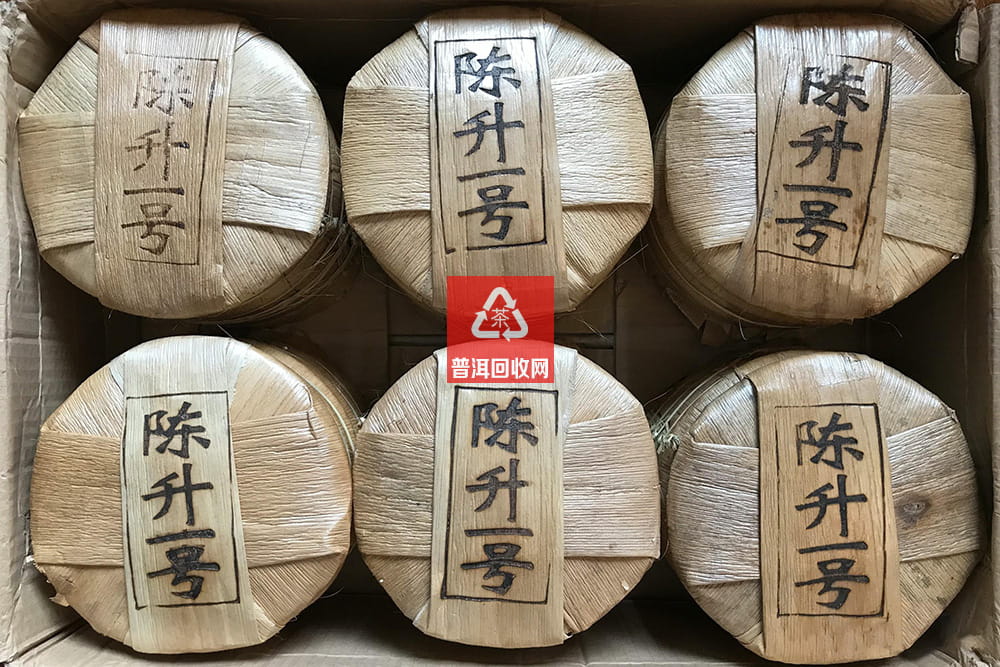 陈升一号
陈升一号
陈升一号
茶
普洱回收网
陈升一号
陈升一号
陈升一号